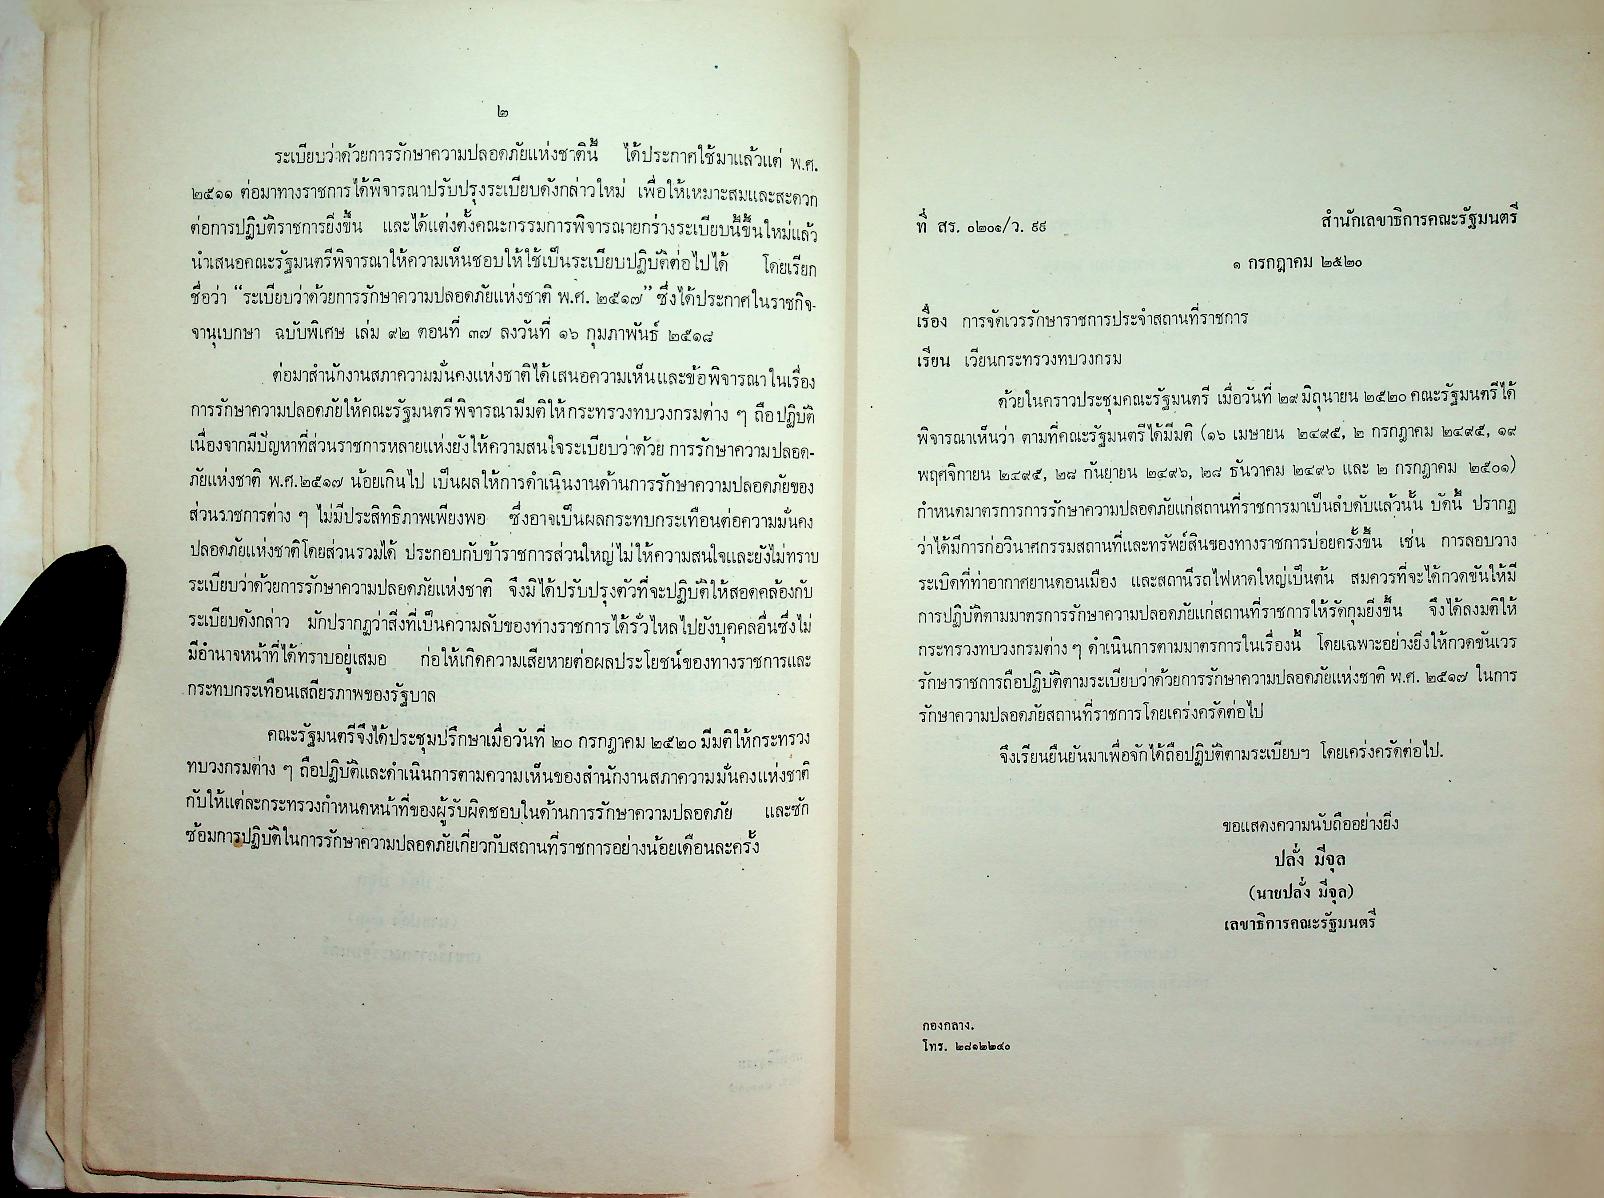 ๒
ระเบียบว่าด้วยการรักษาความปลอดภัยแห่งชาตินี้ ได้ประกาศใช้มาแล้วแต่ พ.ศ.
๒๕๑๑ ต่อมาทางราชการได้พิจารณาปรับปรุงระเบียบดังกล่าวใหม่ เพื่อให้เหมาะสมและสะดวก
ต่อการปฏิบัติราชการยิ่งขึ้น และได้แต่งตั้งคณะกรรมการพิจารณายกร่างระเบียบนี้ขึ้นใหม่แล้ว
นำเสนอคณะรัฐมนตรีพิจารณาให้ความเห็นชอบให้ใช้เป็นระเบียบปฏิบัติต่อไปได้ โดยเรียก
ชื่อว่า “ระเบียบว่าด้วยการรักษาความปลอดภัยแห่งชาติ พ.ศ. ๒๕๑๗” ซึ่งได้ประกาศในราชกิจ-
จานุเบกษา ฉบับพิเศษ เล่ม ๙๒ ตอนที่ ๓๗ ลงวันที่ ๑๖ กุมภาพันธ์ ๒๕๑๘
ต่อมาสำนักงานสภาความมั่นคงแห่งชาติได้เสนอความเห็นและข้อพิจารณาในเรื่อง
การรักษาความปลอดภัยให้คณะรัฐมนตรีพิจารณามีมติให้กระทรวงทบวงกรมต่าง ๆ ถือปฏิบัติ
เนื่องจากมีปัญหาที่ส่วนราชการหลายแห่งยังให้ความสนใจระเบียบว่าด้วย การรักษาความปลอด-
ภัยแห่งชาติ พ.ศ.๒๕๑๗ น้อยเกินไป เป็นผลให้การดำเนินงานด้านการรักษาความปลอดภัยของ
ส่วนราชการต่าง ๆ ไม่มีประสิทธิภาพเพียงพอ ซึ่งอาจเป็นผลกระทบกระเทือนต่อความมั่นคง
ปลอดภัยแห่งชาติโดยส่วนรวมได้ ประกอบกับข้าราชการส่วนใหญ่ไม่ให้ความสนใจและยังไม่ทราบ
ระเบียบว่าด้วยการรักษาความปลอดภัยแห่งชาติ จึงมิได้ปรับปรุงตัวที่จะปฏิบัติให้สอดคล้องกับ
ระเบียบดังกล่าว มักปรากฏว่าสิ่งที่เป็นความลับของทางราชการได้รั่วไหลไปยังบุคคลอื่นซึ่งไม่
มีอำนาจหน้าที่ได้ทราบอยู่เสมอ ก่อให้เกิดความเสียหายต่อผลประโยชน์ของทางราชการและ
กระทบกระเทือนเสถียรภาพของรัฐบาล
คณะรัฐมนตรีจึงได้ประชุมปรึกษาเมื่อวันที่ ๒๐ กรกฎาคม ๒๕๒๐ มีมติให้กระทรวง
ทบวงกรมต่าง ๆ ถือปฏิบัติและดำเนินการตามความเห็นของสำนักงานสภาความมั่นคงแห่งชาติ
กับให้แต่ละกระทรวงกำหนดหน้าที่ของผู้รับผิดชอบในด้านการรักษาความปลอดภัย และซัก
ซ้อมการปฏิบัติในการรักษาความปลอดภัยเกี่ยวกับสถานที่ราชการอย่างน้อยเดือนละครั้ง
ที่ สร. ๐๒๐๑/ว. ๙๙
สำนักเลขาธิการคณะรัฐมนตรี
๑ กรกฎาคม ๒๕๒๐
เรื่อง การจัดเวรรักษาราชการประจำสถานที่ราชการ
เรียน เวียนกระทรวงทบวงกรม
ด้วยในคราวประชุมคณะรัฐมนตรี เมื่อวันที่ ๒๙ มิถุนายน ๒๕๒๐ คณะรัฐมนตรีได้
พิจารณาเห็นว่า ตามที่คณะรัฐมนตรีได้มีมติ (๑๖ เมษายน ๒๔๙๕, ๒ กรกฎาคม ๒๔๙๕, ๑๙
พฤศจิกายน ๒๔๙๕, ๒๘ กันยายน ๒๔๙๖, ๒๘ ธันวาคม ๒๔๙๖ และ ๒ กรกฎาคม ๒๕๐๑)
กำหนดมาตรการการรักษาความปลอดภัยแก่สถานที่ราชการมาเป็นลำดับแล้วนั้น บัดนี้ ปรากฏ
ว่าได้มีการก่อวินาศกรรมสถานที่และทรัพย์สินของทางราชการบ่อยครั้งขึ้น เช่น การลอบวาง
ระเบิดที่ท่าอากาศยานดอนเมือง และสถานีรถไฟหาดใหญ่เป็นต้น สมควรที่จะได้กวดขันให้มี
การปฏิบัติตามมาตรการรักษาความปลอดภัยแก่สถานที่ราชการให้รัดกุมยิ่งขึ้น จึงได้ลงมติให้
กระทรวงทบวงกรมต่าง ๆ ดำเนินการตามมาตรการในเรื่องนี้ โดยเฉพาะอย่างยิ่งให้กวดขันเวร
รักษาราชการถือปฏิบัติตามระเบียบว่าด้วยการรักษาความปลอดภัยแห่งชาติ พ.ศ. ๒๕๑๗ ในการ
รักษาความปลอดภัยสถานที่ราชการโดยเคร่งครัดต่อไป
จึงเรียนยืนยันมาเพื่อจักได้ถือปฏิบัติตามระเบียบฯ โดยเคร่งครัดต่อไป.
ขอแสดงความนับถืออย่างยิ่ง
ปลั่ง มีจุล
(นายปลั่ง มีจุล)
เลขาธิการคณะรัฐมนตรี
กองกลาง.
โทร. ๒๘๑๒๒๔๐